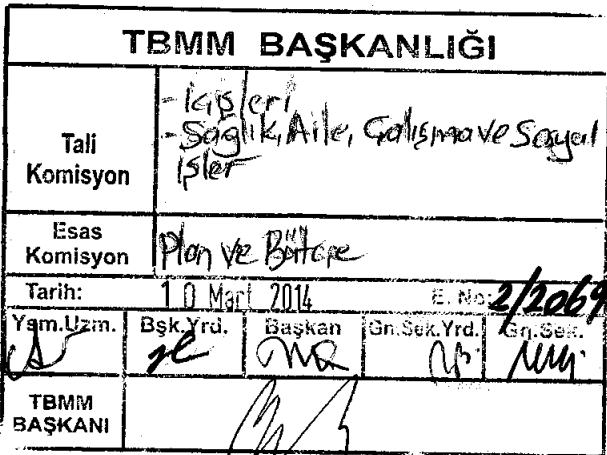 TBMM BAŞKANLIĞI
Tali Komisyon
- İçişleri
- Sağlık, Aile, Çalışma ve Sosyal
İşler
Esas Komisyon
Plan ve Bütçe
Tarih: 10 Mart 2014 E. No: 2/2069
Yam.Uzm. Bşk.Yrd. Başkan Gn.Sek.Yrd. Gn.Sek.
TBMM
BAŞKANI